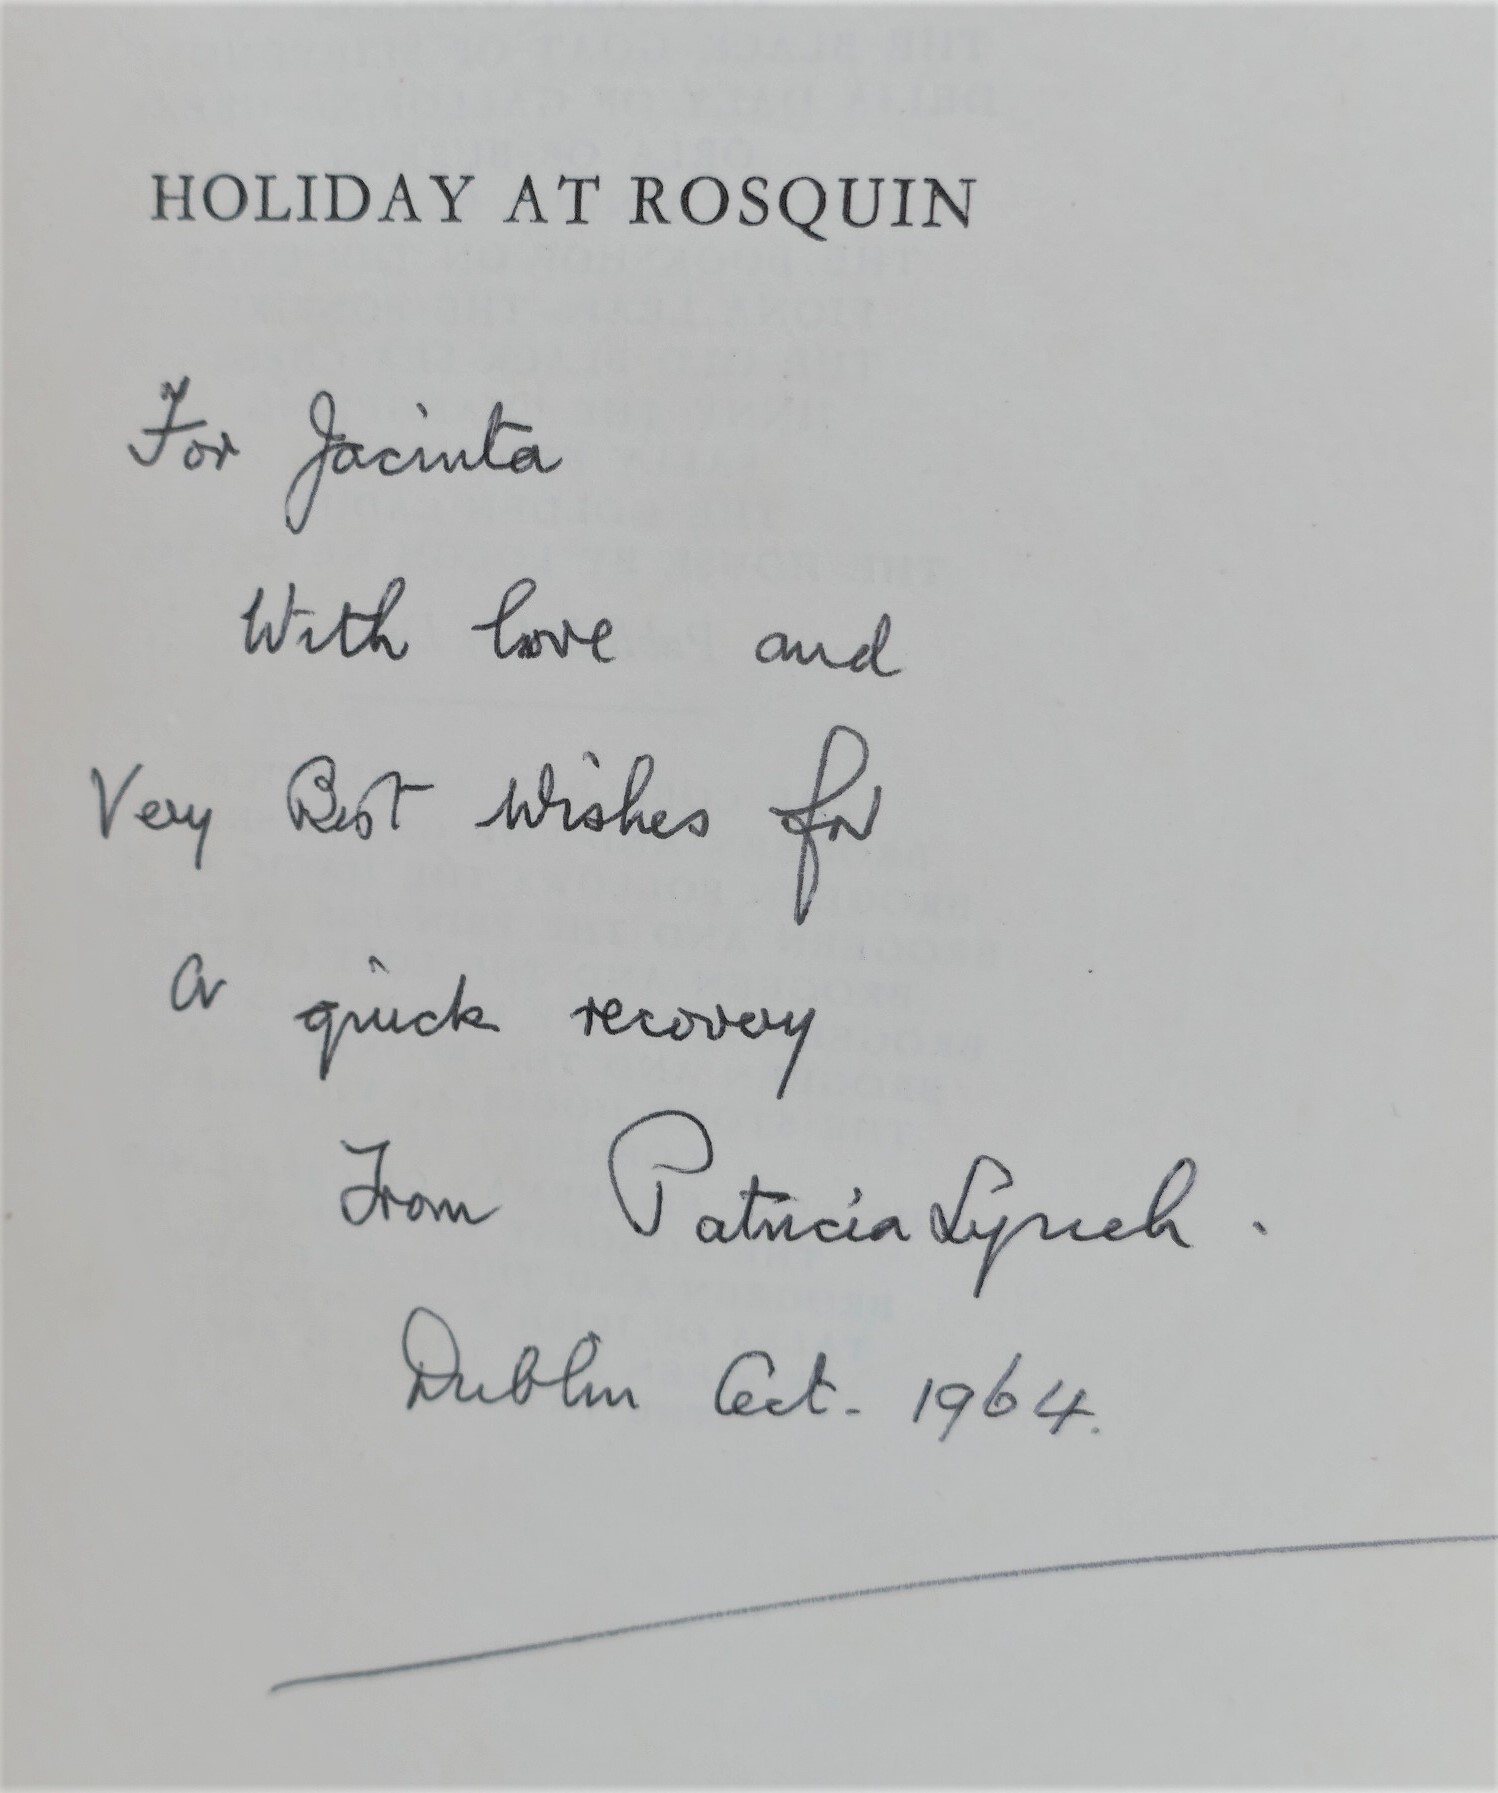 HOLIDAY AT ROSQUIN
For Jacinta
With love and
Very Best Wishes for
a quick recovery
From Patricia Lynch.
Dublin Oct. 1964.